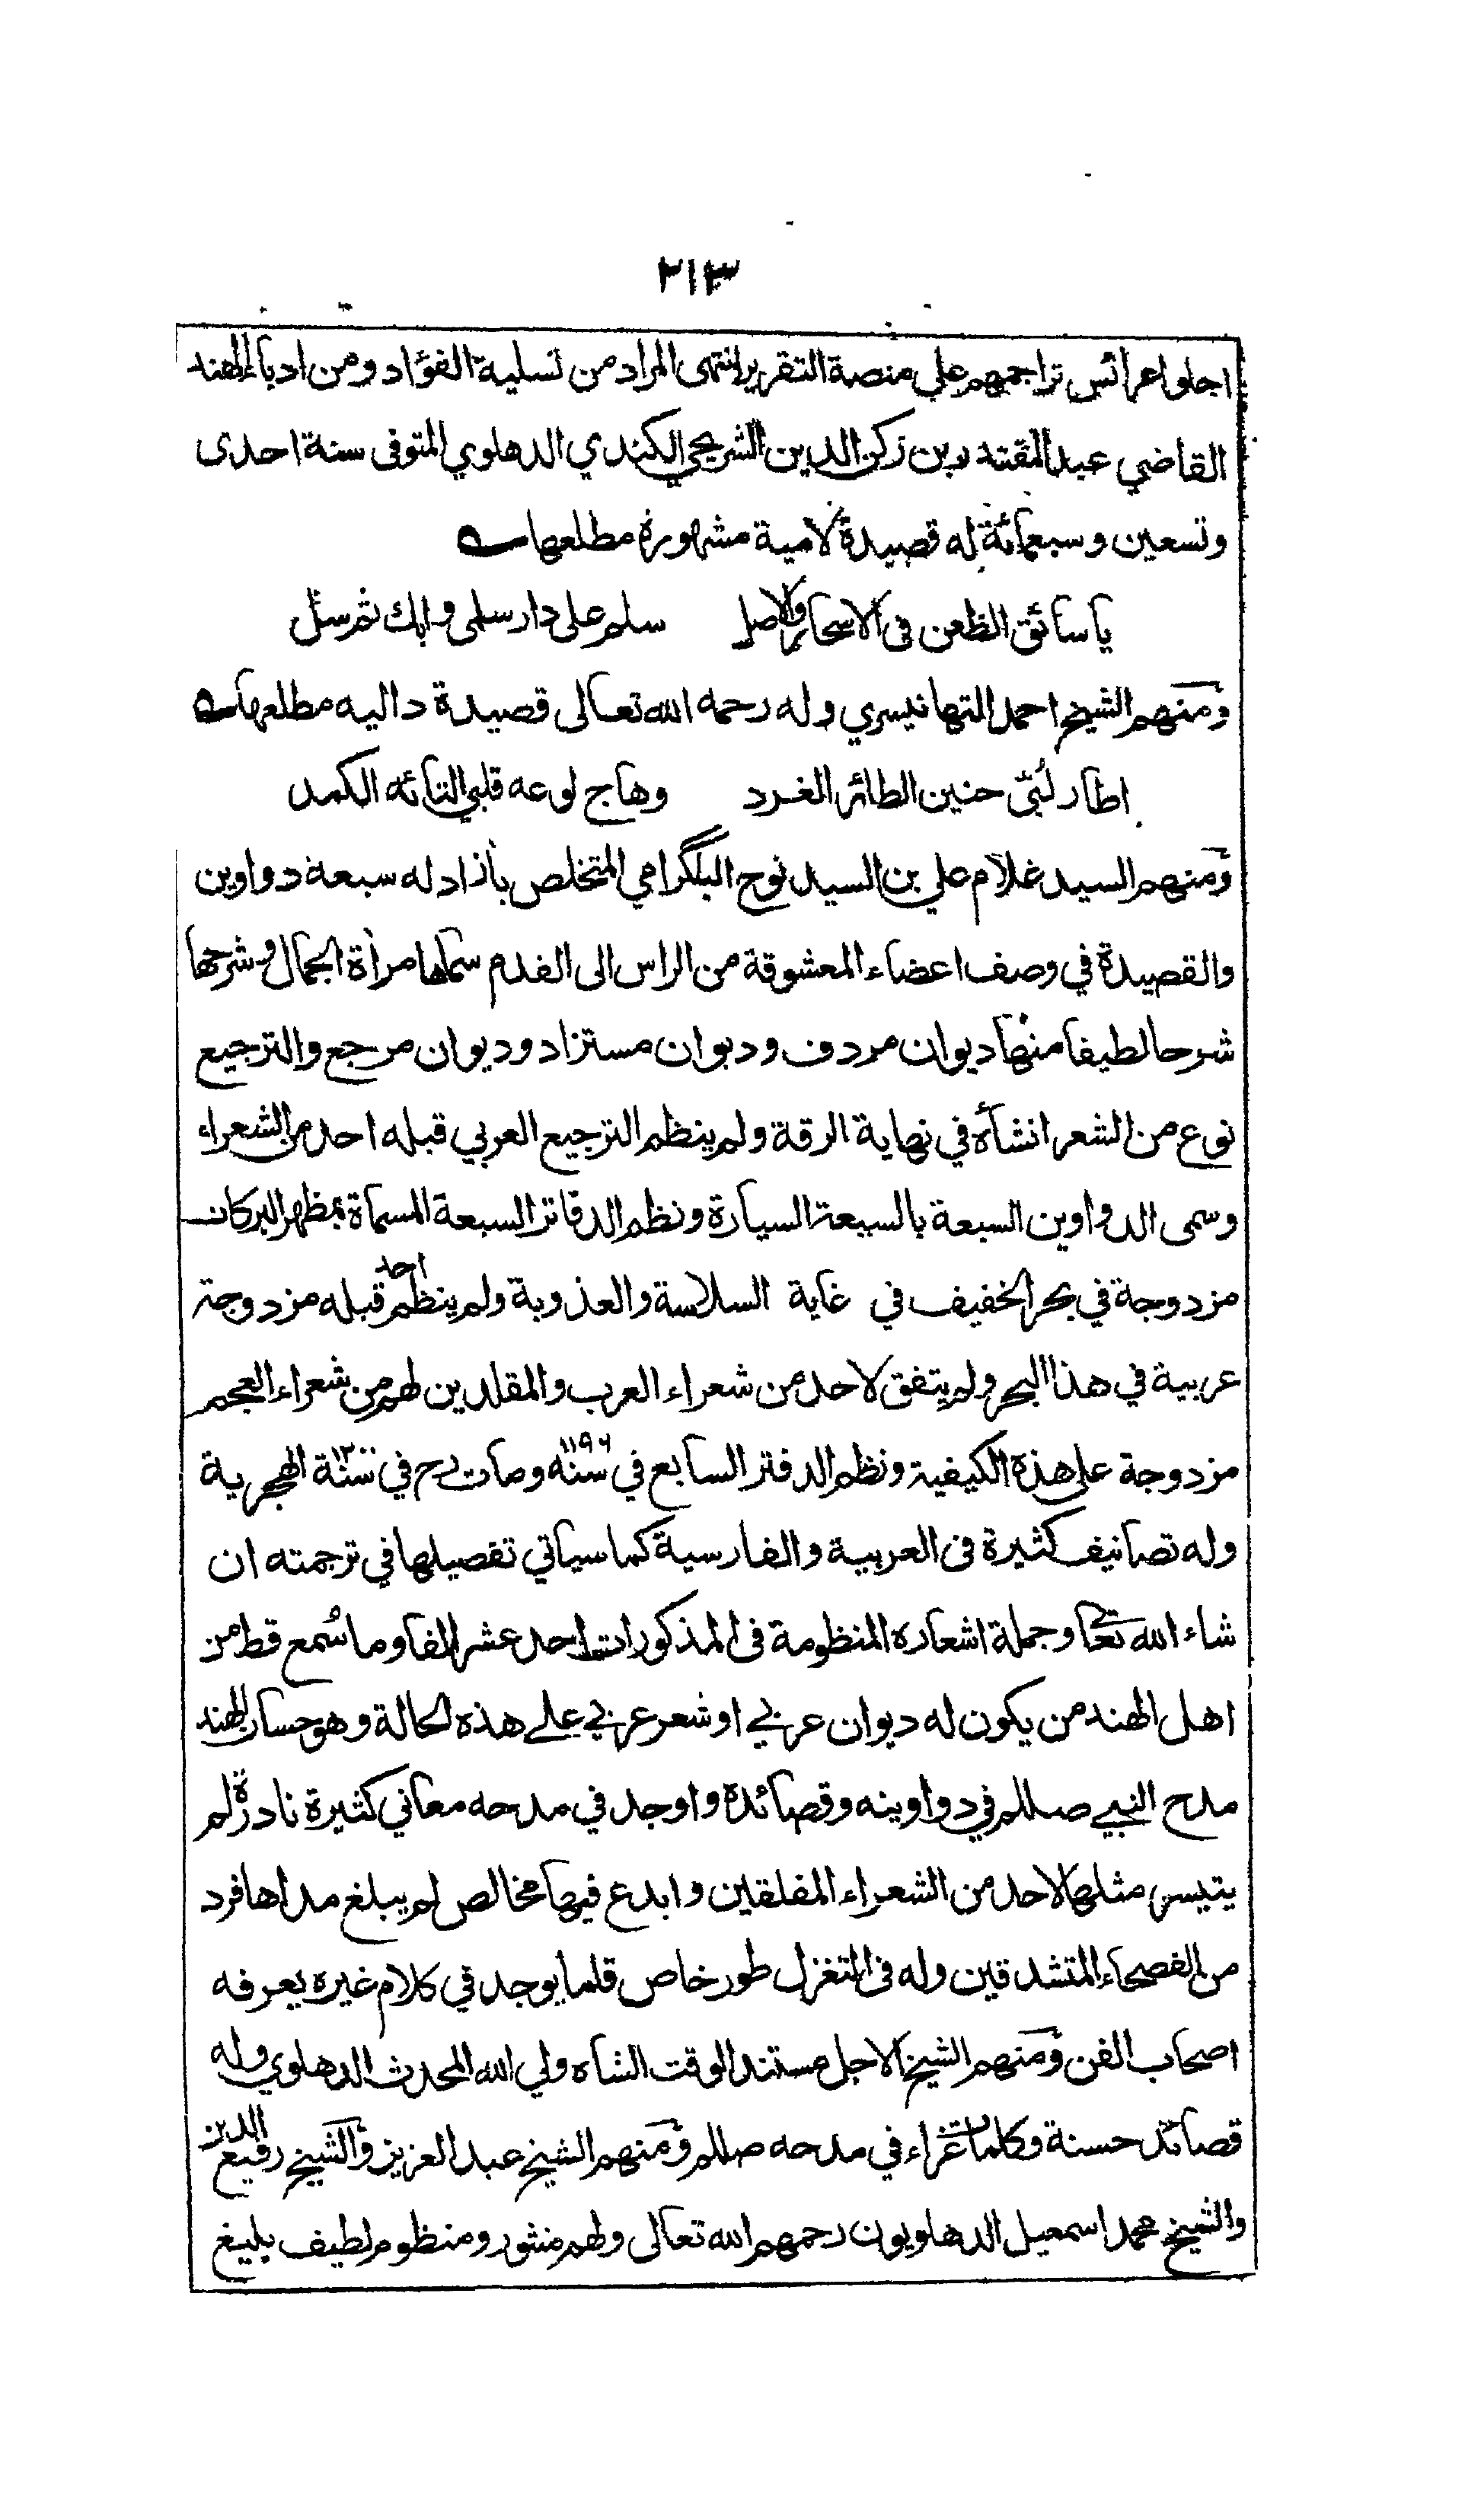 ٢١٣
اجلوا عرائس تراجمهم على منصة التقرير انتهى المراد من تسلية الفؤاد ومن ادباء الهند
القاضي عبد المقتدر بن ركن الدين الشريحي الكندي الدهلوي المتوفى سنة احدى
وتسعين وسبعمائة له قصيدة لامية مشهورة مطلعها
يا سائق الظعن في الاسحار والاصل سلم على دار سلمى وابك ثم سل
ومنهم الشيخ احمد التهانيسري وله رحمه الله تعالى قصيدة داليه مطلعها
اطار لُبّي حنين الطائر الغرد وهاج لوعه قلبي التائه الكمد
ومنهم السيد غلام علي بن السيد نوح البلگرامي المتخلص بآزاد له سبعة دواوين
والقصيدة في وصف اعضاء المعشوقة من الراس الى القدم سماها مرآة الجمال وشرحها
شرحا لطيفا منها ديوان مردف وديوان مستزاد وديوان مرجع والترجيع
نوع من الشعر انشأه في نهاية الرقة ولم ينظم الترجيع العربي قبله احد من الشعراء
وسمى الدواوين السبعة بالسبعة السيارة ونظم الدفاتر السبعة المسماة بمظهر البركات
مزدوجة في بحر الخفيف في غاية السلاسة والعذوبة ولم ينظم احد قبله مزدوجة
عربية في هذا البحر ولم يتفق لاحد من شعراء العرب والمقلدين لهم من شعراء العجم
مزدوجة على هذه الكيفية ونظم الدفتر السابع في سنه ١١٩٦ ومات رح في سنة ١٢٠٠ الهجرية
وله تصانيف كثيرة في العربية والفارسية كما سياتي تفصيلها في ترجمته ان
شاء الله تعا وجملة اشعاره المنظومة في المذكورات احد عشر الفا وما سُمع قط من
اهل الهند من يكون له ديوان عربي او شعر عربي على هذه الحالة وهو حسان الهند
مدح النبي صللم في دواوينه وقصائده واوجد في مدحه معاني كثيرة نادرة لم
يتيسر مثلها لاحد من الشعراء المفلقين وابدع فيها مخالص لم يبلغ مداها فرد
من الفصحاء المتشدقين وله في التغزل طور خاص قلما يوجد في كلام غيره يعرفه
اصحاب الفن ومنهم الشيخ الاجل مستند الوقت الشاه ولي الله المحدث الدهلوي وله
قصائد حسنة وكلمات غراء في مدحه صللم ومنهم الشيخ عبد العزيز والشيخ رفيع الدين
والشيخ محمد اسمعيل الدهلويون رحمهم الله تعالى ولهم منثور ومنظوم لطيف بليغ